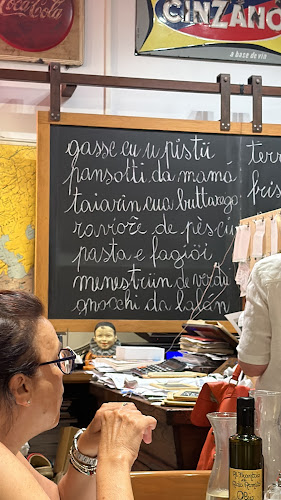 Coca-Cola
CINZANO
à base de vin
gasse cu u pistü
pansotti da mamá
taiarin cua buttarega
raviořе de pèsciu
pasta e fagiöi
menestrun de verdü
gnocchi da balán
terr
fris